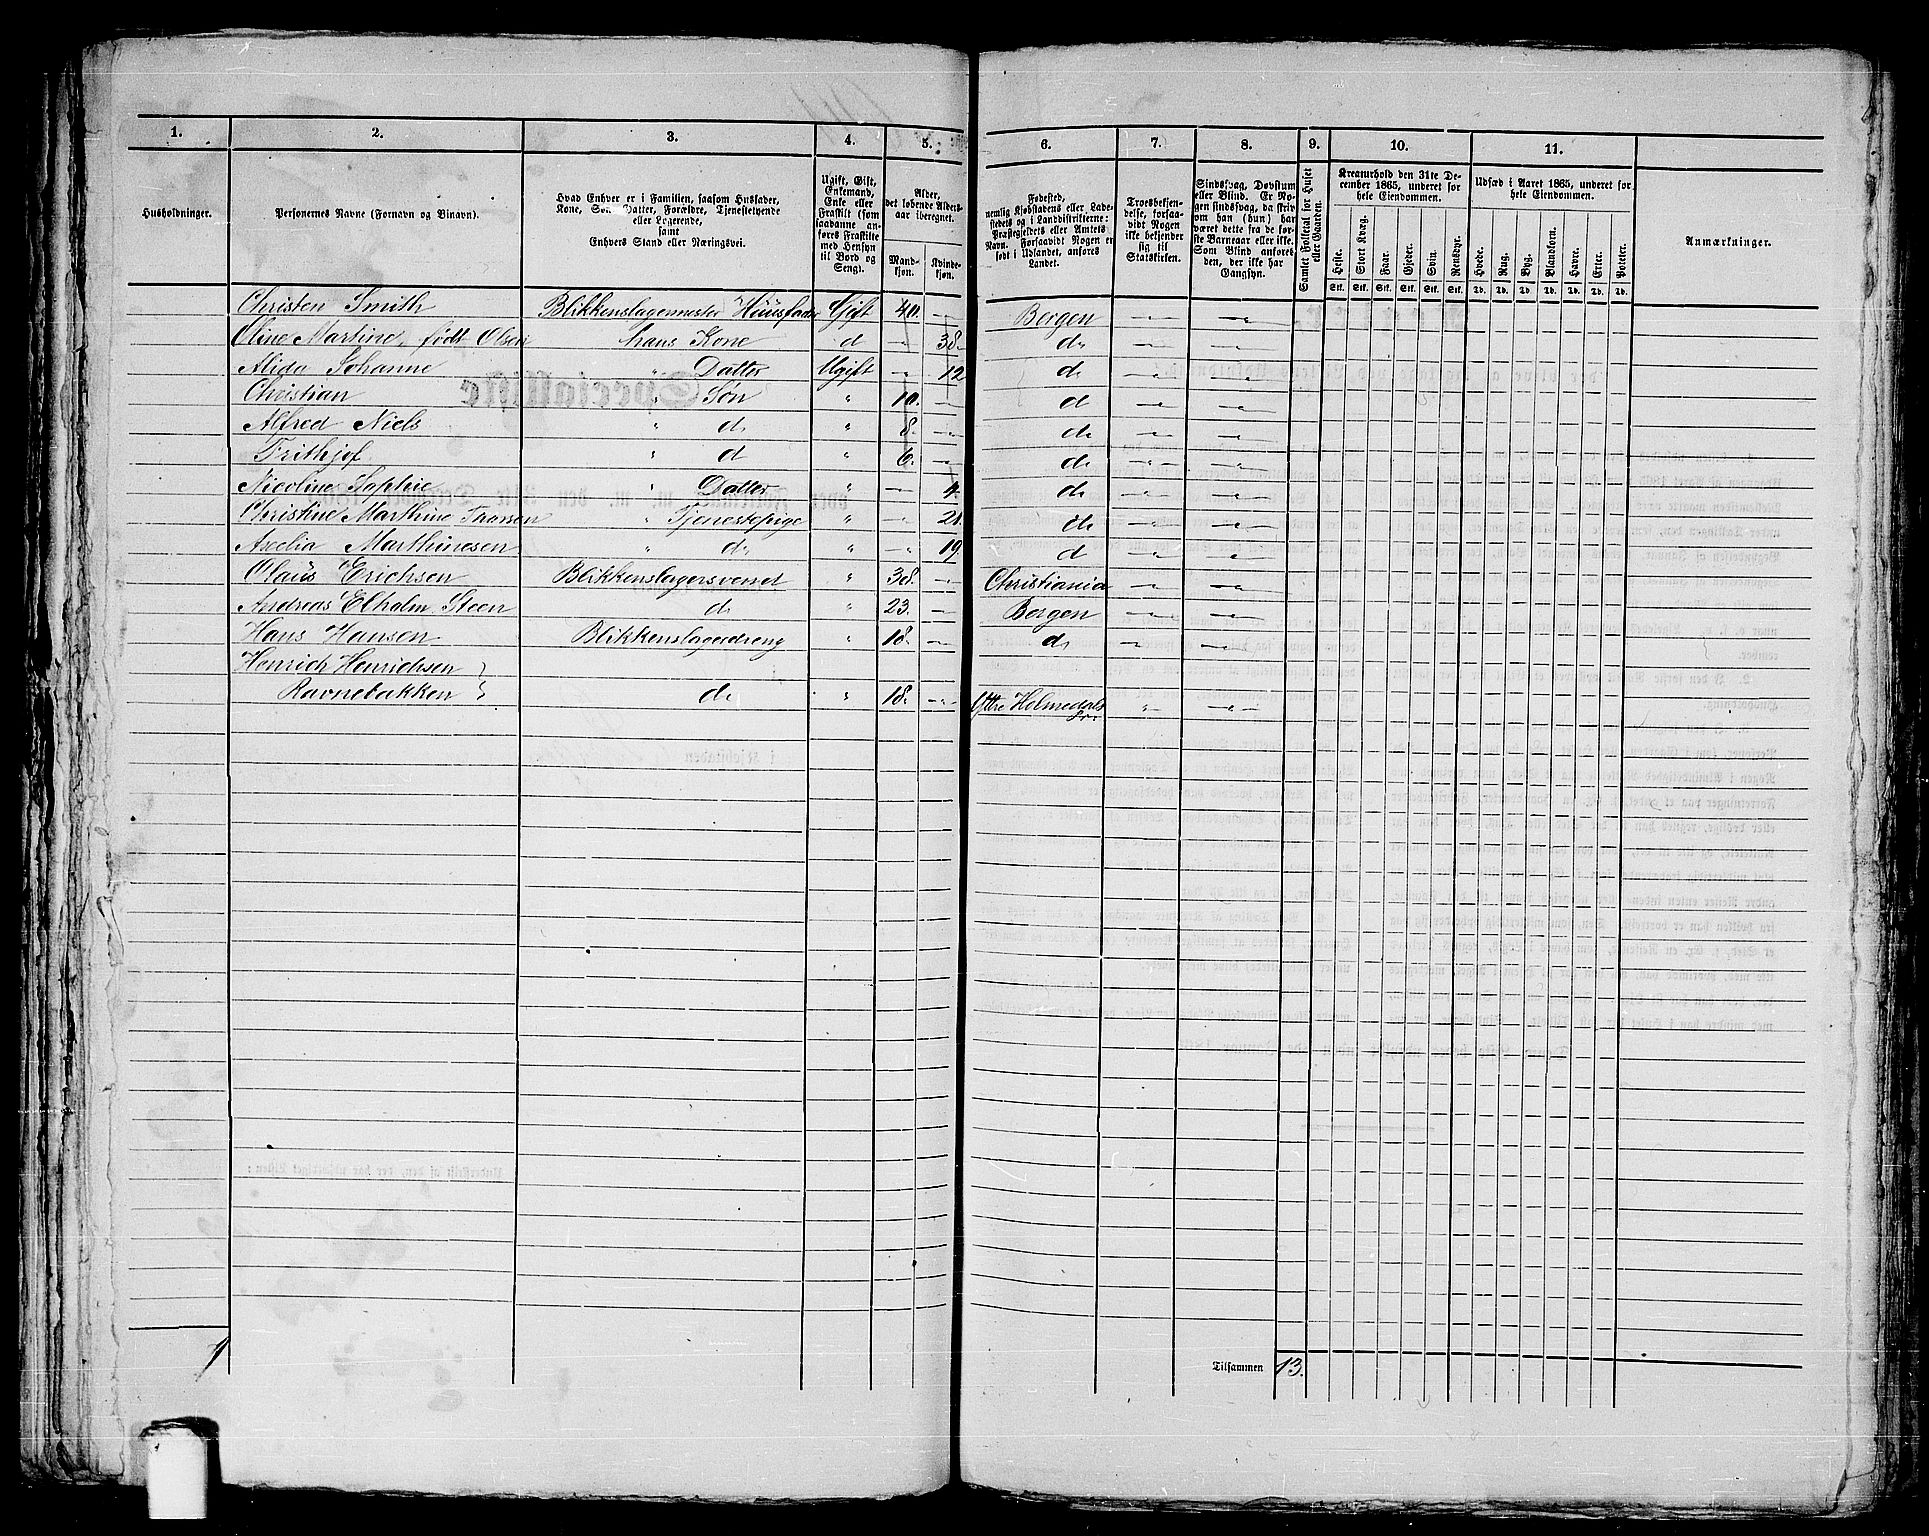 1. 2. 3. 4. 5. 6. 7. 8. 9. 10. 11.
Husholdninger.
Personernes Navne (Fornavn og Binavn).
Hvad Enhver er i Familien, saasom Husfader,
Kone, Søn, Datter, Forældre, Tjenestetyende
eller Logerende,
samt
Enhvers Stand eller Næringsvei.
Ugift, Gift,
Enkemand,
Enke eller
Fraskilt (som
saadanne an-
føres Fraskilte
med Hensyn
til Bord og
Seng).
Alder,
det løbende Alders-
aar iberegnet.
Mand-
kjøn.
Kvinde-
kjøn.
Fødested,
nemlig Kjøbstadens eller Lade-
stedets og i Landdistrikterne:
Præstegjeldets eller Amtets
Navn. Forsaavidt Nogen er
født i Udlandet, anføres
Landet.
Troesbekjen-
delse, forsaa-
vidt Nogen
ikke bekjender
sig til
Statskirken.
Sindssvag, Døvstum
eller Blind. Er No-
gen sindssvag, da skri-
ves om han (hun) har
været dette fra de før-
ste Barneaar eller ikke.
Som Blind anføres
den, der ikke har
Gangsyn.
Samlet Folketal for Huset
eller Gaarden.
Kreaturhold den 31te De-
cember 1865, underet for
hele Eiendommen.
Heste. Stort Kvæg. Faar. Gjeder. Svin. Rensdyr.
Stk. Stk. Stk. Stk. Stk. Stk.
Udsæd i Aaret 1865, underet for
hele Eiendommen.
Hvede. Rug. Byg. Blandkorn. Havre. Erter. Poteter.
Td. Td. Td. Td. Td. Td. Td.
Anmærkninger.
Christen Smith Blikkenslagermester Huusfader Gift 40. - Bergen - -
Oline Martine, født Olsen hans Kone d - 38. do - -
Alida Johanne " Datter Ugift - 12 do - -
Christian " Søn " 10. - do - -
Alfred Niels " do " 8. - do - -
Frithjof " d " 6. - do - -
Nicoline Sophie " Datter " - 4. do - -
Christine Marthine Thorsen " Tjenestepige " - 21. do - -
Axelia Marthinesen " do " - 19. d - -
Olaüs Erichsen Blikkenslagersvend " 38. - Christiania - -
Andreas Elholm Steen do " 23. - Bergen - -
Hans Hansen Blikkenslagerdreng " 18. - do - -
Henrich Henrichsen
Ravnebakken do " 18. - Yttre Holmedals " -
Tilsammen 13.
1